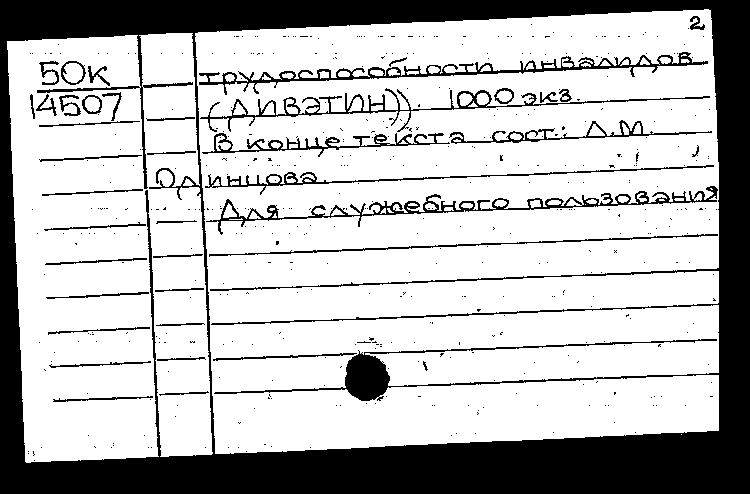 2
50к
14507
трудоспособности инвалидов
(ДИВЭТИН)). 1000 экз.
В конце текста сост.: Л.М.
Одинцова.
Для служебного пользования